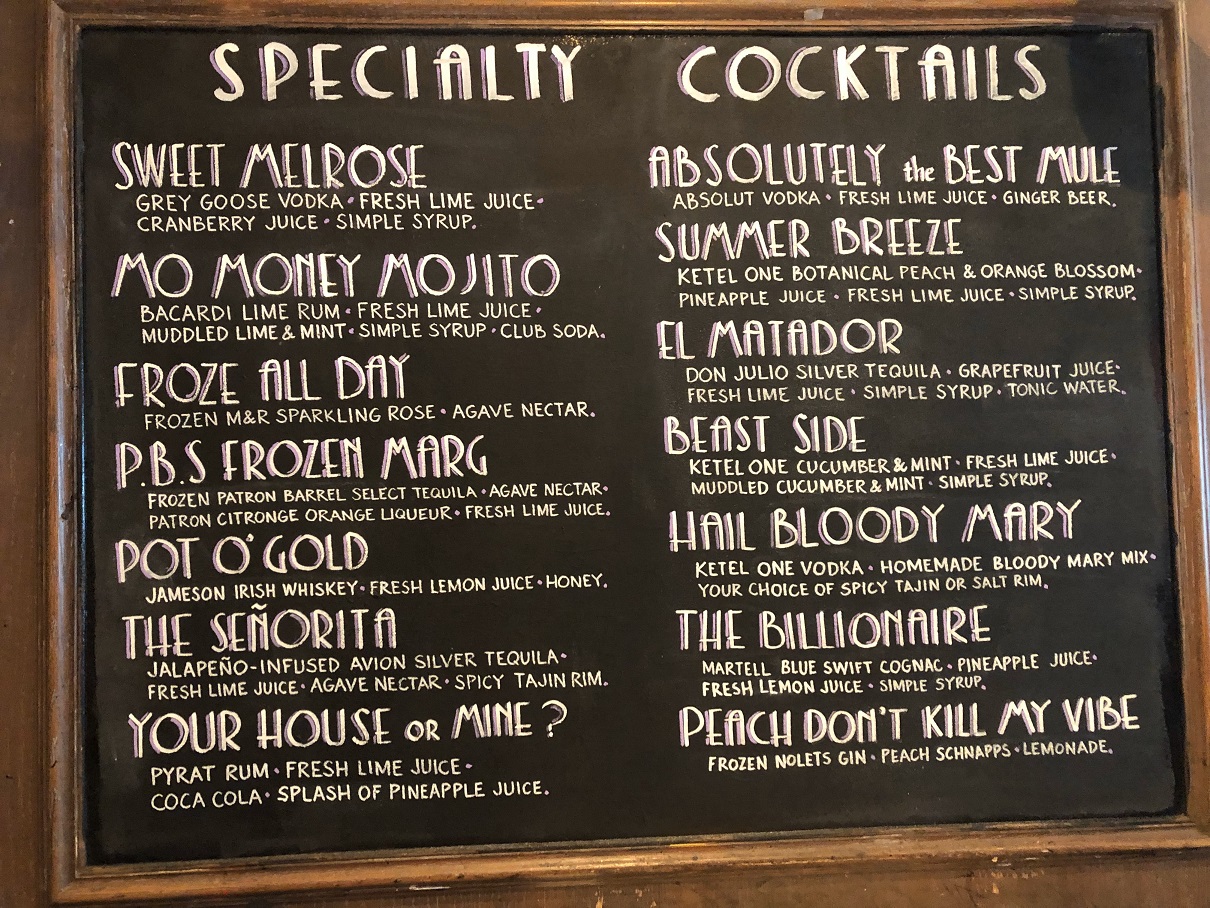 SPECIALTY COCKTAILS
SWEET MELROSE
GREY GOOSE VODKA • FRESH LIME JUICE •
CRANBERRY JUICE • SIMPLE SYRUP.
MO MONEY MOJITO
BACARDI LIME RUM • FRESH LIME JUICE •
MUDDLED LIME & MINT • SIMPLE SYRUP • CLUB SODA.
FROZE ALL DAY
FROZEN M&R SPARKLING ROSE • AGAVE NECTAR.
P.B.S FROZEN MARG
FROZEN PATRON BARREL SELECT TEQUILA • AGAVE NECTAR •
PATRON CITRONGE ORANGE LIQUEUR • FRESH LIME JUICE.
POT O' GOLD
JAMESON IRISH WHISKEY • FRESH LEMON JUICE • HONEY.
THE SEÑORITA
JALAPEÑO-INFUSED AVION SILVER TEQUILA •
FRESH LIME JUICE • AGAVE NECTAR • SPICY TAJIN RIM.
YOUR HOUSE OR MINE?
PYRAT RUM • FRESH LIME JUICE •
COCA COLA • SPLASH OF PINEAPPLE JUICE.
ABSOLUTELY the BEST MULE
ABSOLUT VODKA • FRESH LIME JUICE • GINGER BEER.
SUMMER BREEZE
KETEL ONE BOTANICAL PEACH & ORANGE BLOSSOM •
PINEAPPLE JUICE • FRESH LIME JUICE • SIMPLE SYRUP.
EL MATADOR
DON JULIO SILVER TEQUILA • GRAPEFRUIT JUICE •
FRESH LIME JUICE • SIMPLE SYRUP • TONIC WATER.
BEAST SIDE
KETEL ONE CUCUMBER & MINT • FRESH LIME JUICE •
MUDDLED CUCUMBER & MINT • SIMPLE SYRUP.
HAIL BLOODY MARY
KETEL ONE VODKA • HOMEMADE BLOODY MARY MIX •
YOUR CHOICE OF SPICY TAJIN OR SALT RIM.
THE BILLIONAIRE
MARTELL BLUE SWIFT COGNAC • PINEAPPLE JUICE •
FRESH LEMON JUICE • SIMPLE SYRUP.
PEACH DON'T KILL MY VIBE
FROZEN NOLETS GIN • PEACH SCHNAPPS • LEMONADE.